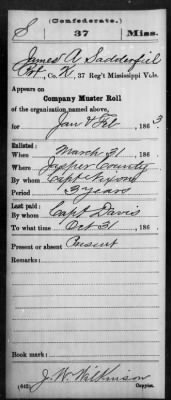 (Confederate.)
S 37 Miss.
James A. Sadderfiel
Pvt, Co. H, 37 Reg't Mississippi Vols.
Appears on
Company Muster Roll
of the organization named above,
for Jan & Feb, 1863.
Enlisted:
When March 31, 186 .
Where Jasper County
By whom Capt Nixon
Period 3 years
Last paid:
By whom Capt Davis
To what time Oct 31, 186 .
Present or absent Present
Remarks:
Book mark:
J. W. Wilkinson
(642) Copyist.